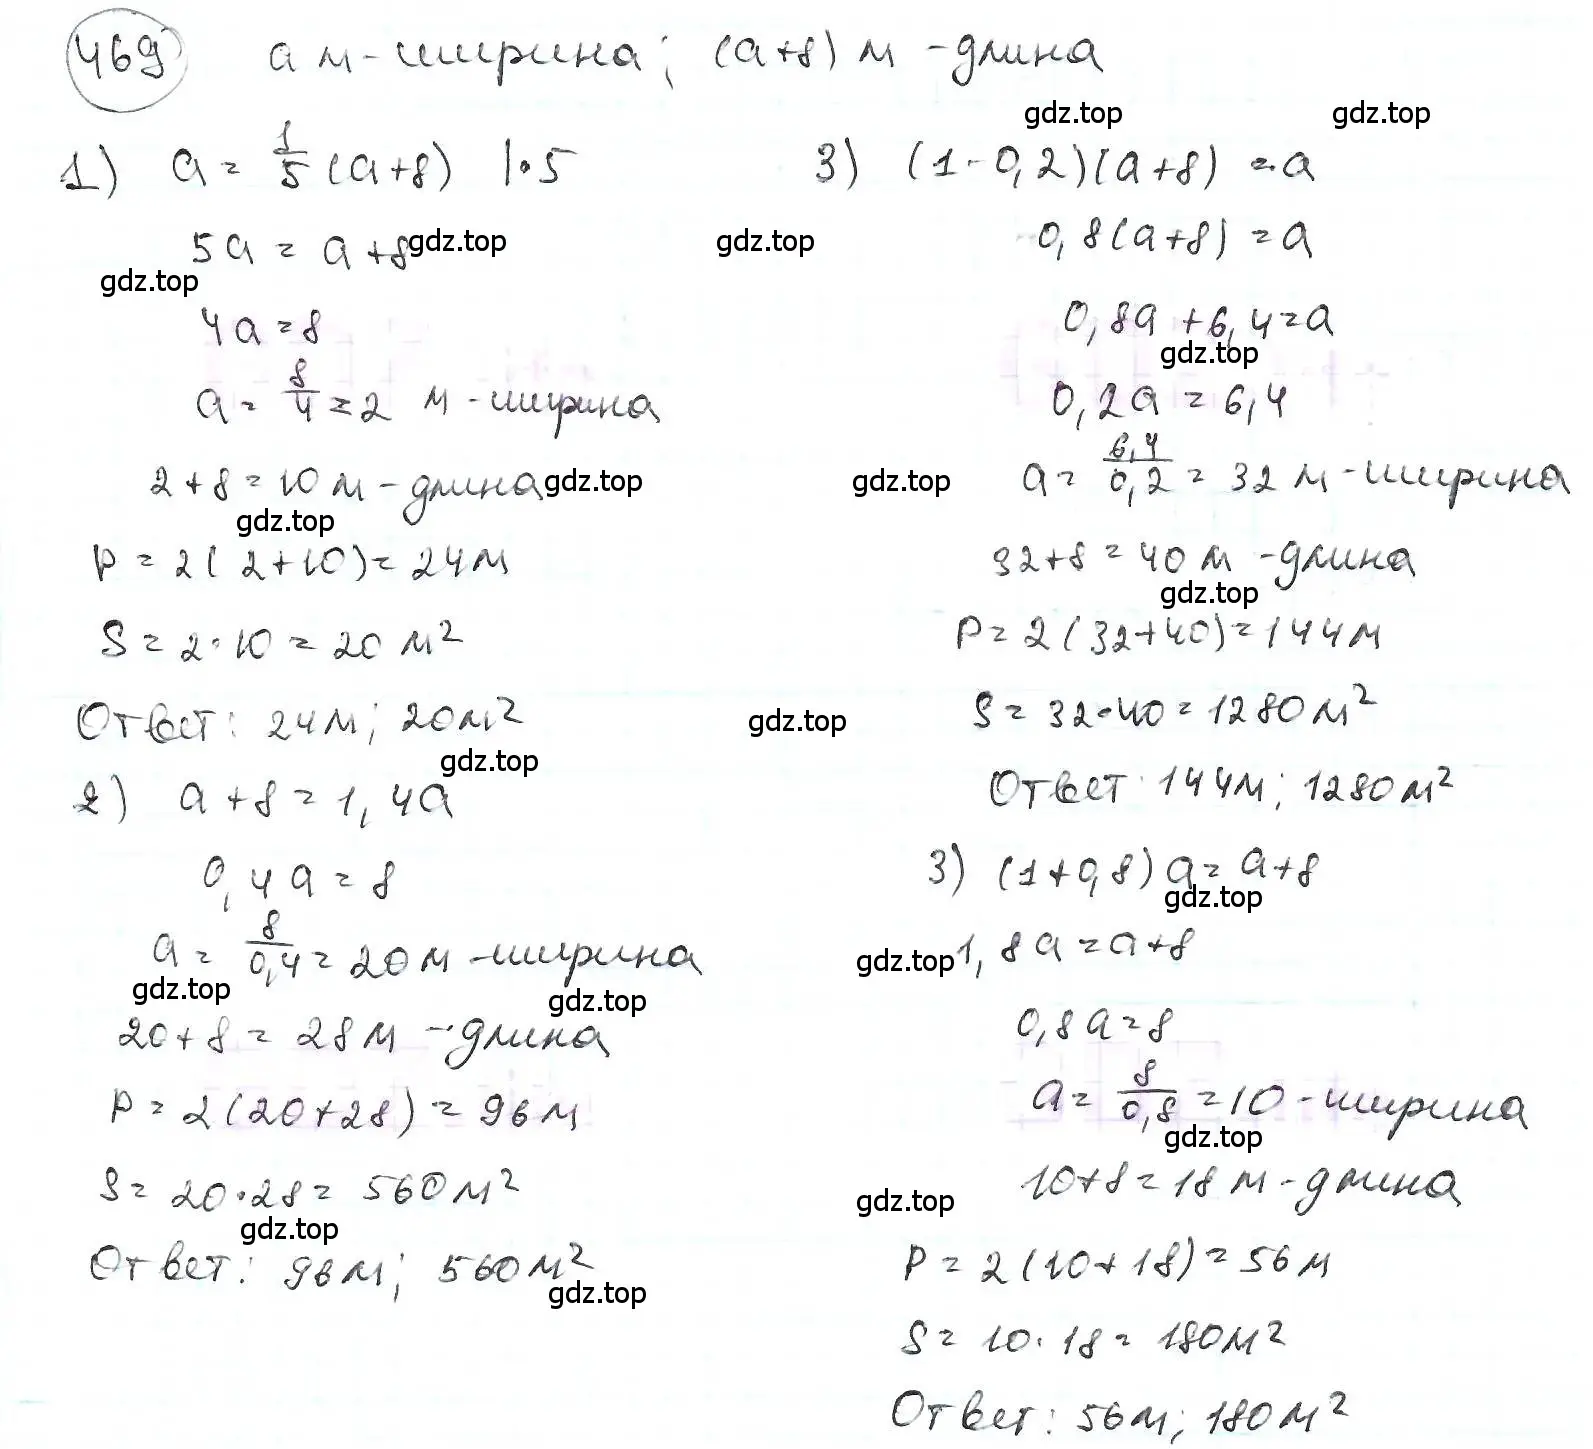 469 a м - ширина; (a+8) м - длина
gdz.top gdz.top
1) a = 1/5 (a+8) |·5
5a = a+8
gdz.top gdz.top
gdz.top
4a = 8
a = 8/4 = 2 м - ширина
2+8 = 10 м - длина
gdz.top
gdz.top
P = 2(2+10) = 24м
S = 2·10 = 20 м²
Ответ: 24м; 20м²
gdz.top
gdz.top
2) a+8 = 1,4a
0,4a = 8
a = 8/0,4 = 20м - ширина
gdz.top gdz.top
20+8 = 28м - длина
P = 2(20+28) = 96м
S = 20·28 = 560м²
gdz.top
Ответ: 96м; 560м²
gdz.top
3) (1-0,2)(a+8) = a
0,8(a+8) = a
gdz.top
0,8a + 6,4 = a
gdz.top
0,2a = 6,4
a = 6,4/0,2 = 32 м - ширина
gdz.top
32+8 = 40 м - длина
gdz.top
P = 2(32+40) = 144м
S = 32·40 = 1280м²
Ответ: 144м; 1280м²
3) (1+0,8)a = a+8
gdz.top
1,8a = a+8
gdz.top
0,8a = 8
a = 8/0,8 = 10 - ширина
gdz.top
10+8 = 18 м - длина
gdz.top
P = 2(10+18) = 56м
S = 10·18 = 180м²
Ответ: 56м; 180м²